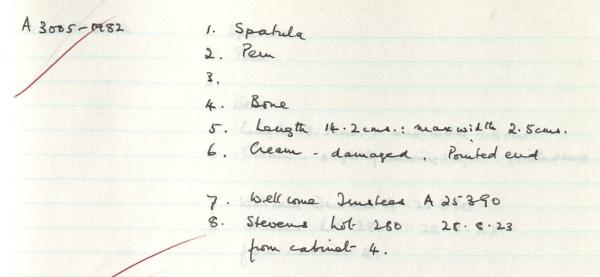 A 3005-0982
1. Spatula
2. Peru
3.
4. Bone
5. Length 14.2cms.: max width 2.5cms.
6. Cream - damaged. Pointed end
7. Wellcome Trustees A 25390
8. Stevens Lot 280 28.8.23
from cabinet 4.